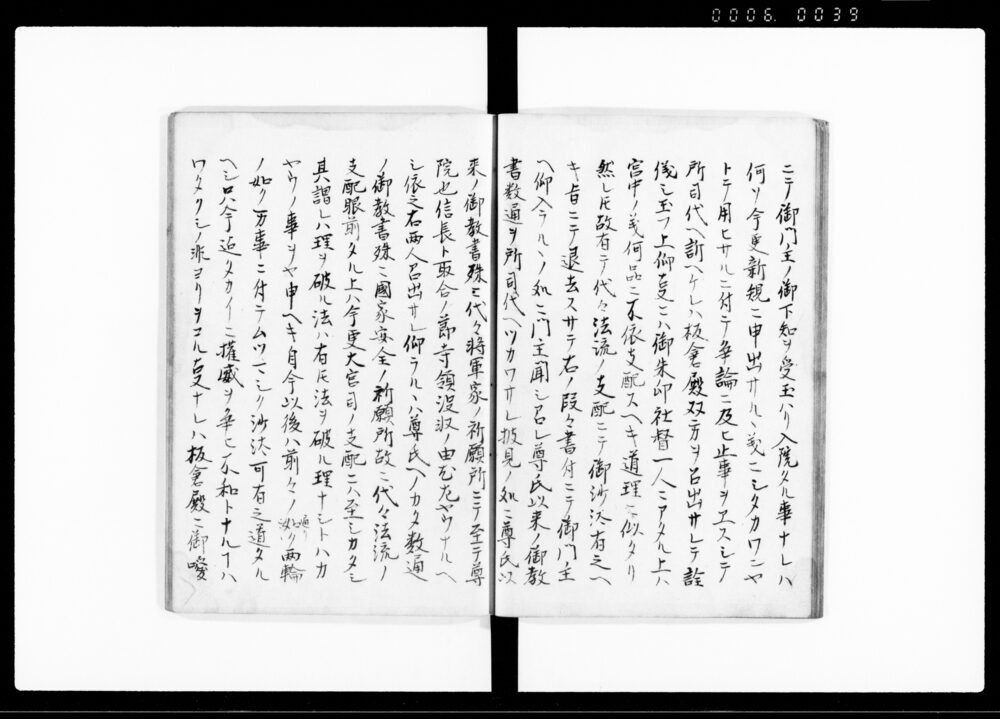 0006. 0039
ニテ御門主ノ御下知ヲ受玉ハリ入院タル事ナレハ
何ソ今更新規ニ申出サルヽ義ニシタカワンヤ
トテ用ヒサルニ付テ争論ニ及ヒ止事ヲヱスシテ
所司代ヘ訴ヘケレハ板倉殿双方ヲ召出サレテ詮
儀シ玉フ上仰ラハ御朱印社督一人ニアタル上ハ
宮中ノ義何品ニ不依支配スヘキ道理ニ似タリ
然レ𪜈故有テ代々法流ノ支配ニテ御沙汰有之ヘ
キ旨ニテ退去スサテ右ノ段々書付ニテ御門主
ヘ仰入ラルヽノ処ニ門主聞シ召レ尊氏以来ノ御教
書数通ヲ所司代ヘツカワサレ披見ノ処ニ尊氏以
来ノ御教書殊ニ代々将軍家ノ祈願所ニテ至テ尊
院也信長ト取合ノ節寺領没収ノ由尤ヤウナルヘ
シ依之右両人召出サレ仰ラルヽハ尊氏ヘノカタ数通
ノ御教書殊ニ國家安全ノ祈願所故ニ代々法流ノ
支配眼前タル上ハ今更大宮司ノ支配ニハ至シカタシ
其謂レハ理ヲ破ル法ハ有𪜈法ヲ破ル理ナシトハカ
ヤウノ事ヲヤ申ヘキ自今以後ハ前々ノ通リ如ク両輪
ノ如ク万事ニ付テムツマシク沙汰可有之道タル
ヘシ口ハ今迄タカイニ権威ヲ争ヒ不和トナルヿハ
ワタクシノ派ヨリヲコル㕝ナレハ板倉殿ニ御噯